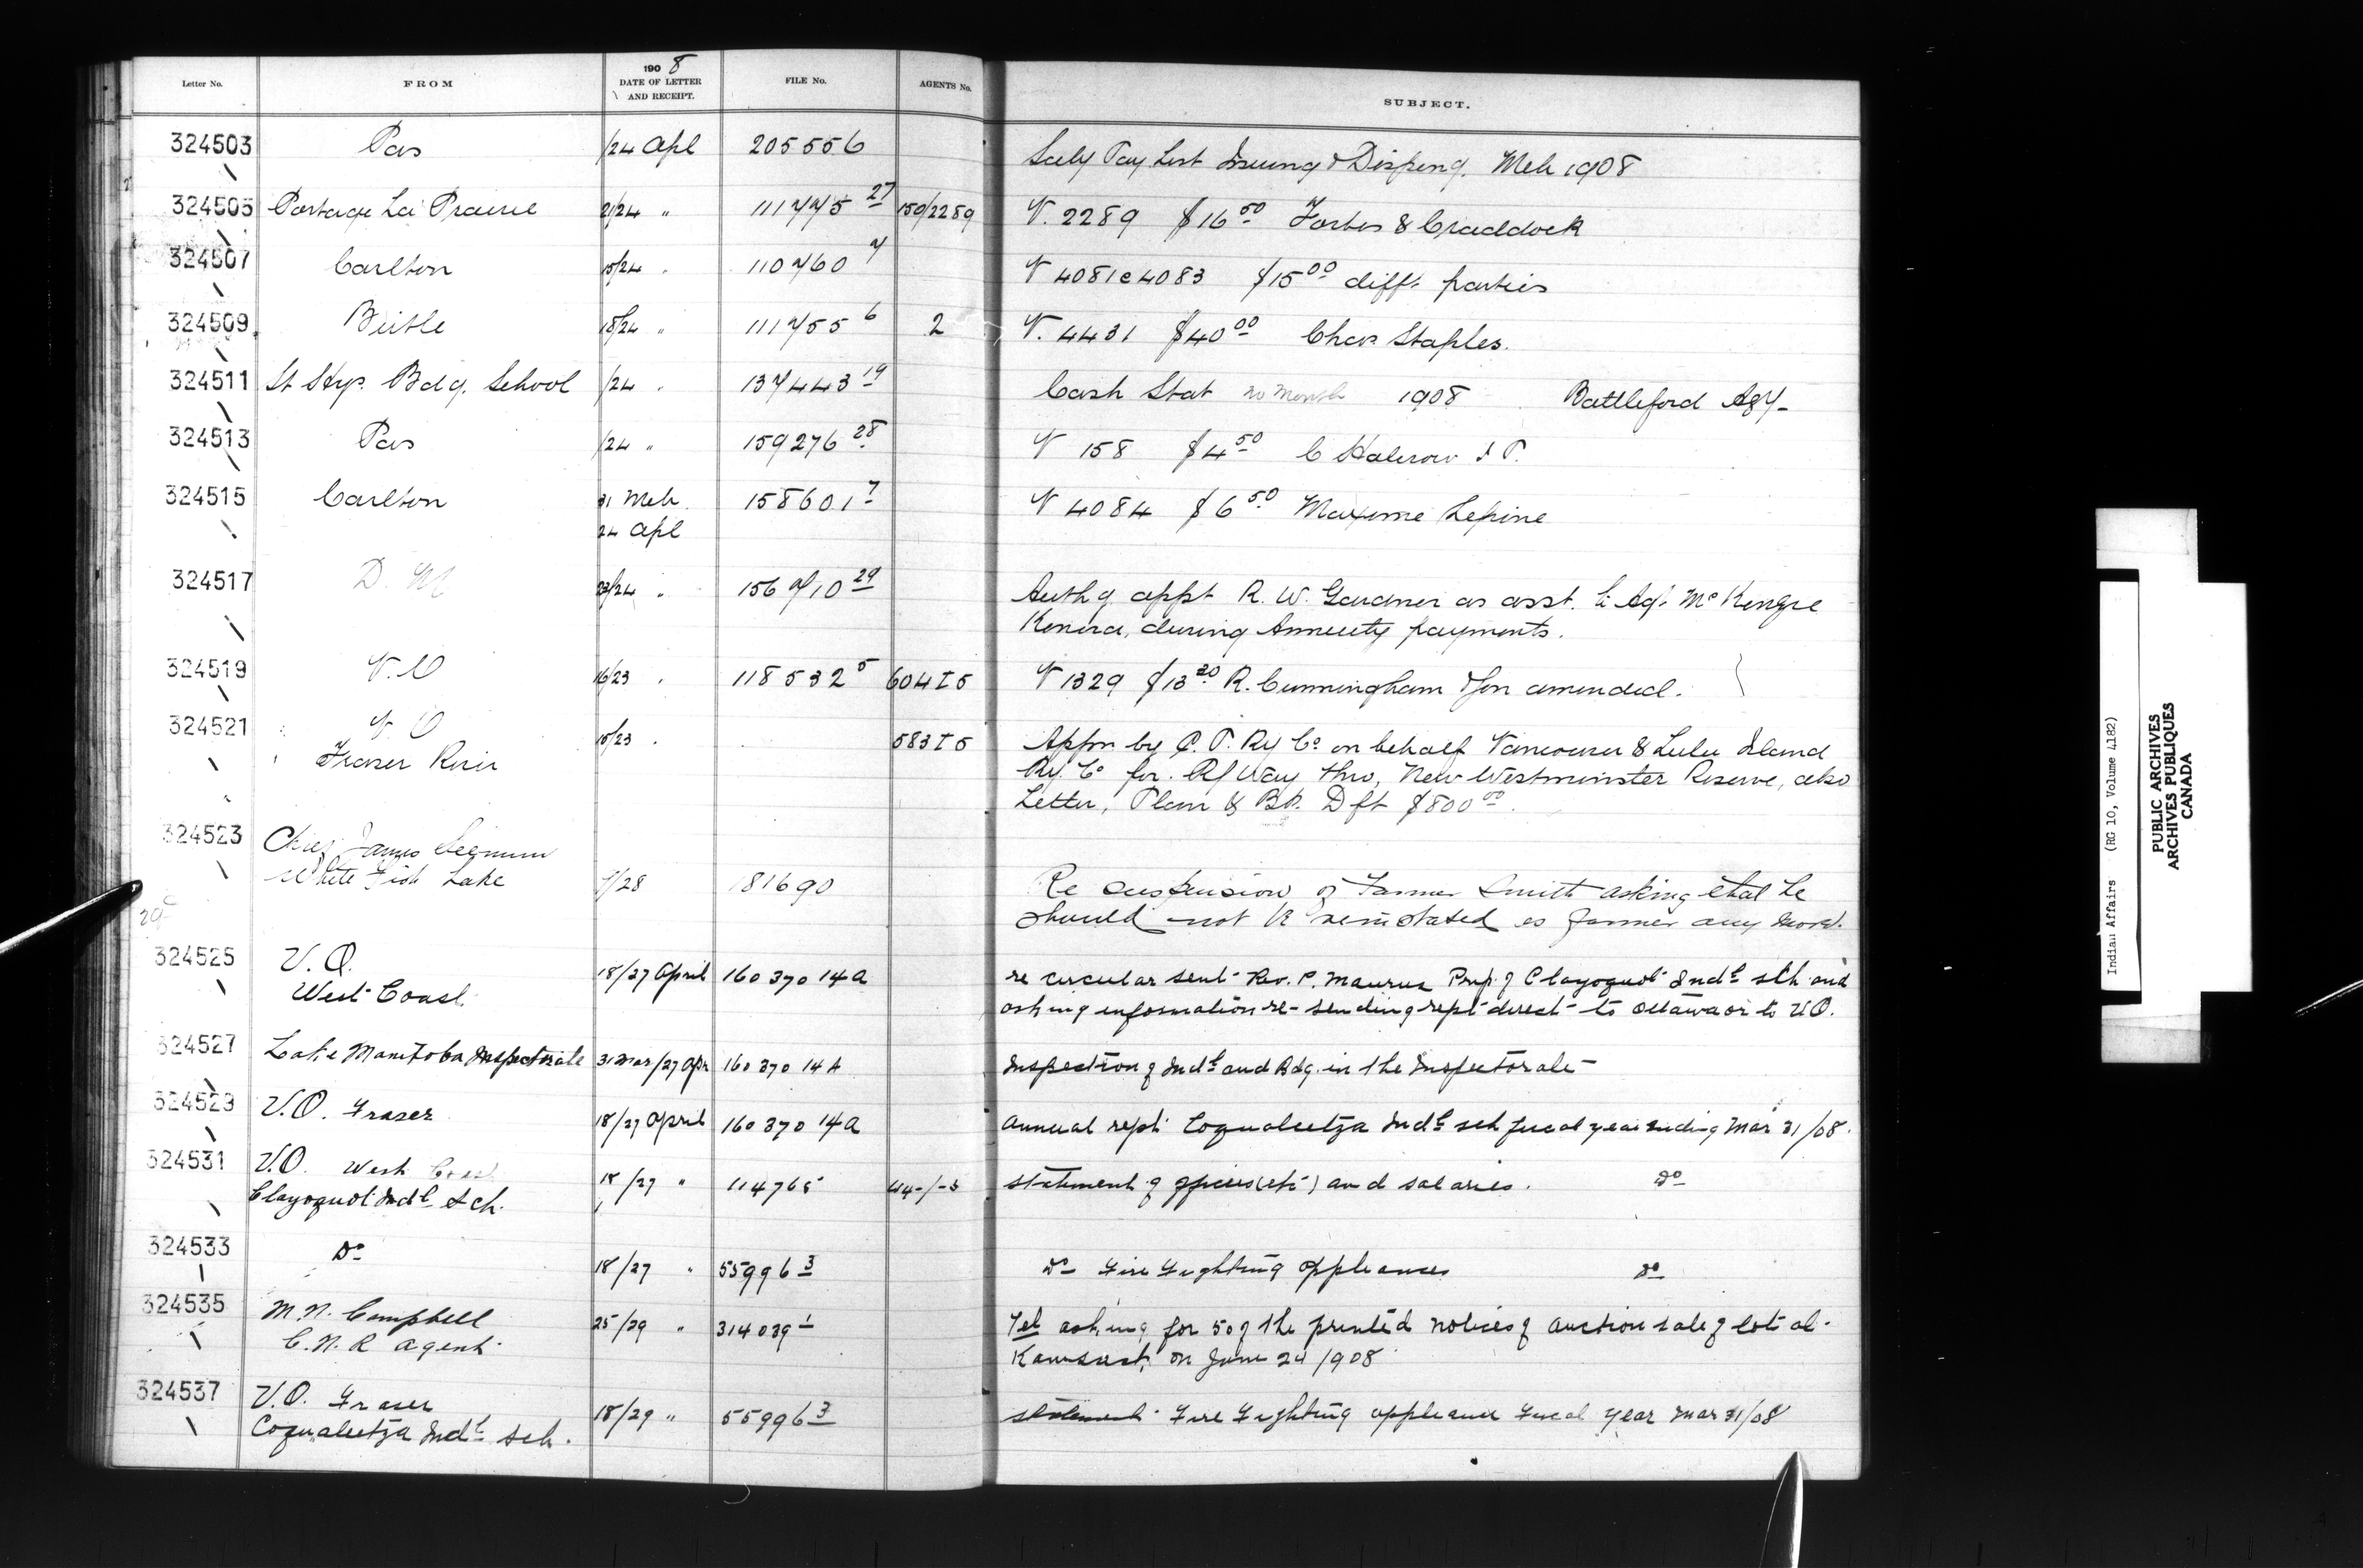 Letter No. FROM 1908 DATE OF LETTER AND RECEIPT. FILE No. AGENTS No. SUBJECT.
324503 Pas /24 Apl 205556 Paylist Issuing & Dispeng. Mch 1908
324505 Portage La Prairie 21/24 " 111775 27 150/2289 V. 2289 $16 50 Forbes & Craddock
324507 Carlton 15/24 " 110760 7 V 4081 @ 4083 $15 00 difft parties
324509 Birtle 18/24 " 111755 6 2 V. 4431 $40 00 Chas Staples.
324511 Bdg. School /24 " 137443 19 Cash Stat no month 1908 Battleford Agy
324513 Pas /24 " 159276 28 V 158 $4 50 C Halcrow J P.
324515 Carlton 31 Mch 158601 7 V 4084 $6 50 Maxime Lepine
24 Apl
324517 D. M 23/24 " 156710 29 Authg appt R. W. Gardner as asst. to Agt McKenzie
Kenora, during Annuity payments.
324519 V. O 16/23 " 118532 5 604 I 5 V 1329 $13 20 R. Cunningham & Son amended.
324521 V. O 15/23 " 583 I 5 Appn by C. P. Ry Co on behalf Vancouver & Lulu Island
Fraser River Ry. Co for R/Way thro, New Westminster Reserve, also
Letter, Plan & Bk. Dft $800 00.
324523 Chief James
White Fish Lake /28 181690 Re suspension of Farmer Smith asking that he
should not be reinstated as farmer any more.
29
324525 V. O. 18/27 April 160370 14A re circular sent Rev. P. Maurus Prip. of Clayoquot Indl sch and
West Coast asking information re- sending rept direct to Ottawa or to V.O.
324527 Lake Manitoba Inspectorate 31 Mar/27 Apr 160370 14A Inspection of Indl and Bdg. in the Inspectorate
324529 V.O. Fraser 18/27 April 160370 14A Annual rept Coqualeetza Indl sch fiscal year ending Mar 31/08.
324531 V.O. West Coast 18/27 " 114765 statement of officers (etc) and salaries. Do
Clayoquot Indl Sch.
324533 Do 18/27 " 55996 3 Do Fire Fighting Appliances Do
324535 M. N. Campbell 25/29 " 314039 1 Tel asking for 50 of the printed notices of auction sale of lots at
C. N. R Agent Kamsack on June 24/1908
324537 V.O. Fraser 18/29 " 55996 3 statement Fire Fighting appliances Fiscal Year Mar 31/08
Coqualeetza Indl sch.
Indian Affairs (RG 10, Volume 4182)
PUBLIC ARCHIVES
ARCHIVES PUBLIQUES
CANADA